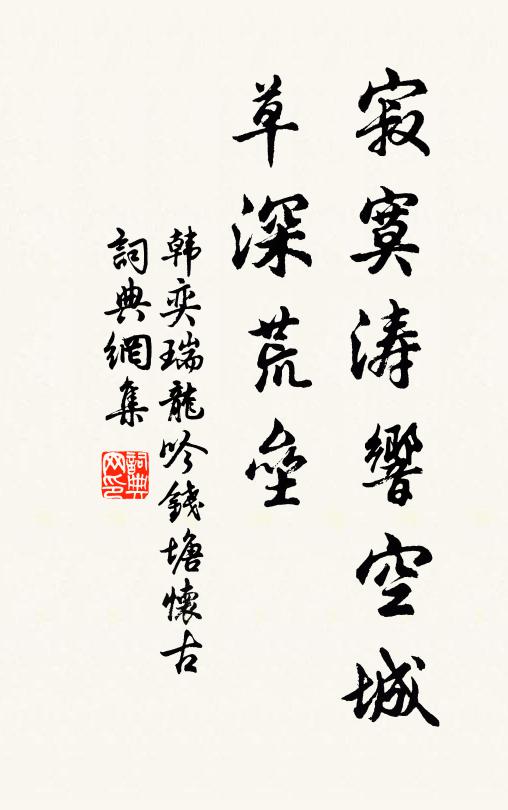 寂寞涛響空城
草深荒壘
韩奕瑞龍吟錢塘懷古
詞典網集
詞典網印